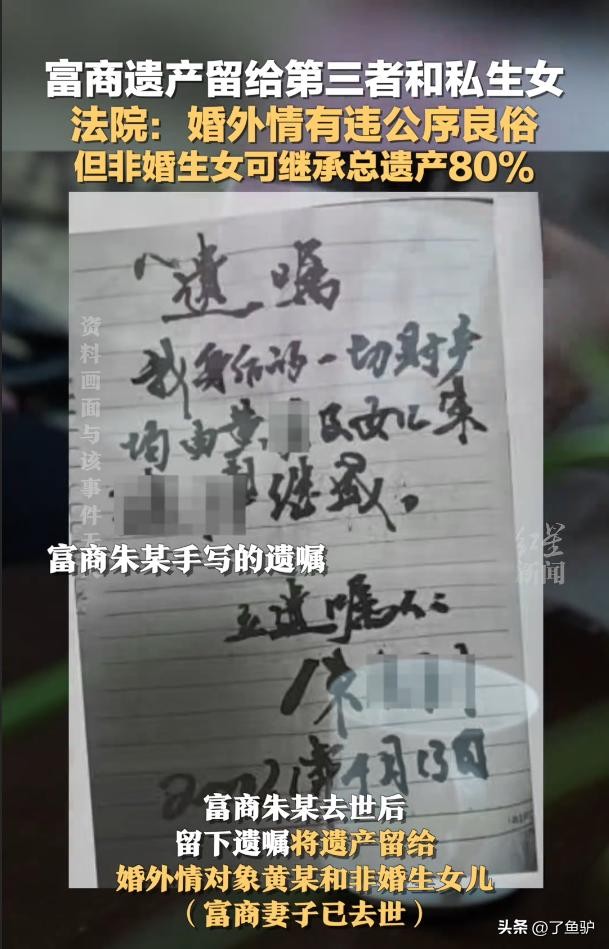 富商遗产留给第三者和私生女
法院：婚外情有违公序良俗
但非婚生女可继承总遗产80%
遗嘱
我身后的一切财产
均由黄 及女儿朱
继承。
资料画面与该事件无
红星
新闻
富商朱某手写的遗嘱
立遗嘱人：
朱
2021年 月13日
富商朱某去世后
留下遗嘱将遗产留给
婚外情对象黄某和非婚生女儿
（富商妻子已去世）
头条 @了鱼驴